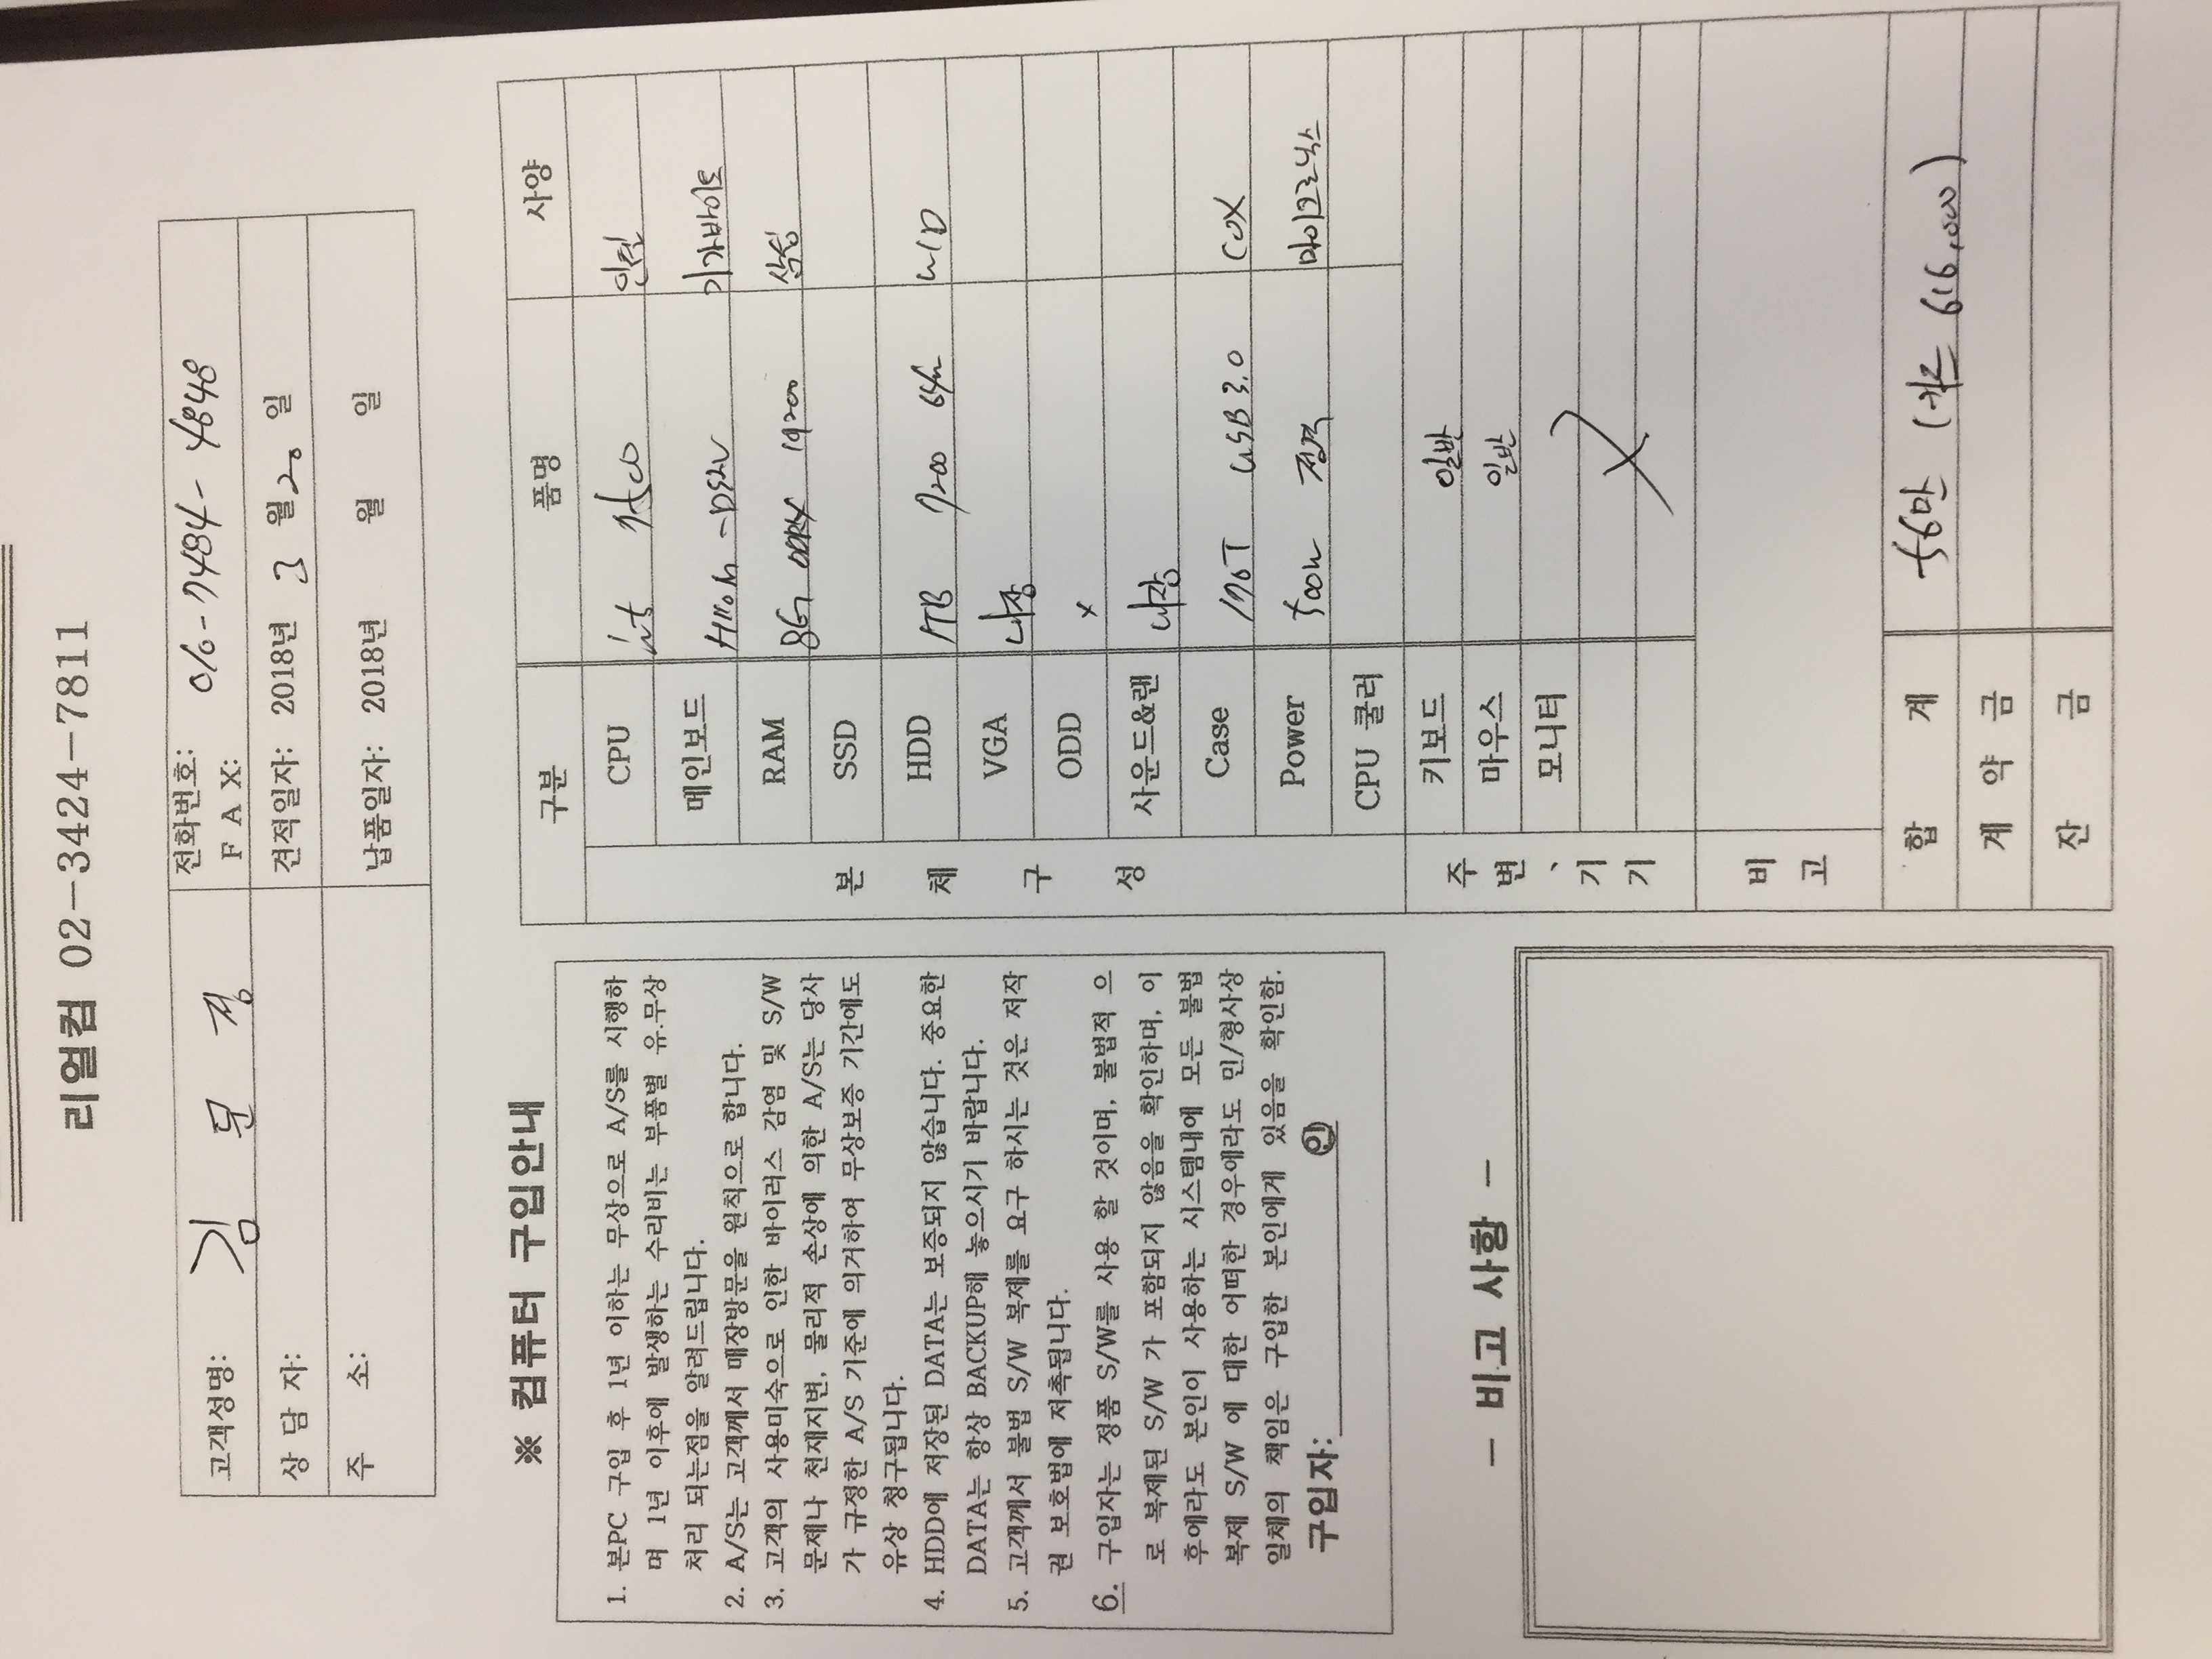 리얼컴 02-3424-7811
고객성명: 김 문 정
상 담 자:
주 소:
전화번호: 010-7484-4848
F A X:
견적일자: 2018년 3 월 20 일
납품일자: 2018년 월 일
※ 컴퓨터 구입안내
1. 본PC 구입 후 1년 이하는 무상으로 A/S를 시행하
며 1년 이후에 발생하는 수리비는 부품별 유.무상
처리 되는점을 알려드립니다.
2. A/S는 고객께서 매장방문을 원칙으로 합니다.
3. 고객의 사용미숙으로 인한 바이러스 감염 및 S/W
문제나 천재지변, 물리적 손상에 의한 A/S는 당사
가 규정한 A/S 기준에 의거하여 무상보증 기간에도
유상 청구됩니다.
4. HDD에 저장된 DATA는 보증되지 않습니다. 중요한
DATA는 항상 BACKUP해 놓으시기 바랍니다.
5. 고객께서 불법 S/W 복제를 요구 하시는 것은 저작
권 보호법에 저촉됩니다.
6. 구입자는 정품 S/W를 사용 할 것이며, 불법적 으
로 복제된 S/W 가 포함되지 않음을 확인하며, 이
후에라도 본인이 사용하는 시스템내에 모든 불법
복제 S/W 에 대한 어떠한 경우에라도 민/형사상
일체의 책임은 구입한 본인에게 있음을 확인함.
구입자: 인
- 비고 사항 -
구분 품명 사양
본 체 구 성
CPU 인텔
메인보드 기가바이트
RAM 8G DDR4 19200 삼성
SSD
HDD 1TB 7200 64m WD
VGA 내장
ODD x
사운드&랜 내장
Case USB 3.0 COX
Power 500w 정격 마이크로닉스
CPU 쿨러
주변、기기
키보드 일반
마우스 일반
모니터 X
비고
합 계 56만 (카드 616,000)
계 약 금
잔 금